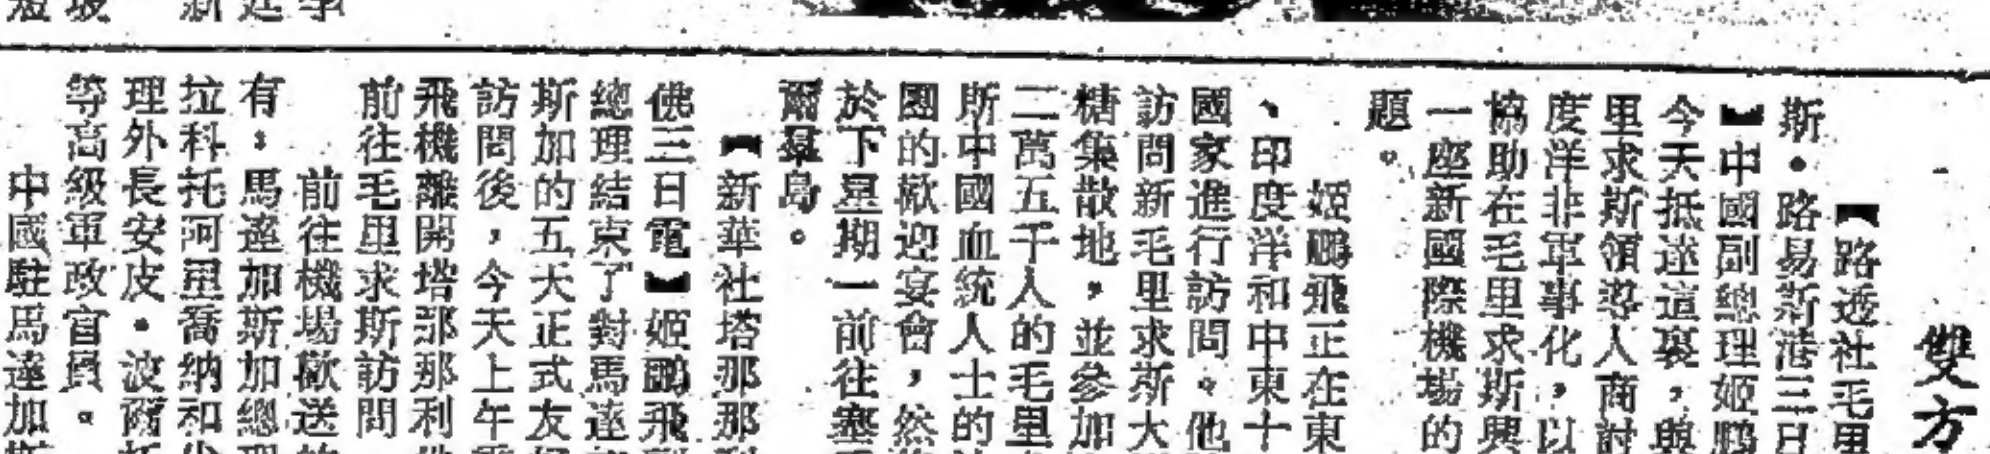 雙方
【路透社毛里
斯·路易斯港三日
】中國副總理姬鵬
今天抵達這裏,與
里求斯領導人商討
度洋非軍事化,以
協助在毛里求斯興
一座新國際機場的
題。
姬鵬飛正在東
、印度洋和中東十
國家進行訪問。他
訪問新毛里求斯大
糖集散地,並參加
二萬五千人的毛里
斯中國血統人士的
團的歡迎宴會,然
於下星期一前往塞
爾羣島。
【新華社塔那那利
佛三日電】姬鵬飛副
總理結束了對馬達
斯加的五天正式友
訪問後,今天上午
飛機離開塔那那利
前往毛里求斯訪問
前往機場歡送的
有:馬達加斯加總理
拉科托阿里喬納和
理外長安皮·波爾
等高級軍政官員。
中國駐馬達加斯